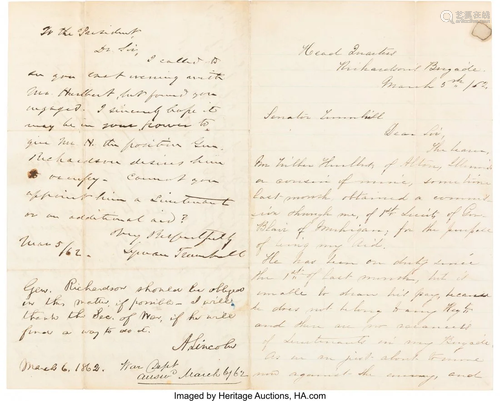 To the President,
Dr. Sir,
I called to
see you last evening with
Mr. Hurlbut, but found you
engaged. I sincerely hope it
may be in your power to
give Mr. H. the position Gen.
Richardson desires him
to occupy. Cannot you
appoint him a Lieutenant
or an additional aid?
Very Respectfully
Lyman Trumbull
Mar 5/62.
Gen. Richardson should be obliged
in this matter, if possible. I will
thank the Sec. of War, if he will
find a way to do it.
A. Lincoln
March 6. 1862.
War Dept
March 6/62
Head Quarters
Richardsons Brigade
March 5th /62
Senator Trumbull
Dear Sir,
Mr
of Alton, Illinois
a cousin of mine, sometime
last month obtained a commis
sion through me, of 1st Lieut of Gov
Blair of Michigan, for the purpose
of being my Aid.
He has been on duty since
the 1st of last month, but is
unable to draw his pay, because
he does not belong to any Regt
and there are no
of Lieutenants in my Brigade.
As we are just about to move
out against the enemy, and
Imaged by Heritage Auctions, HA.com